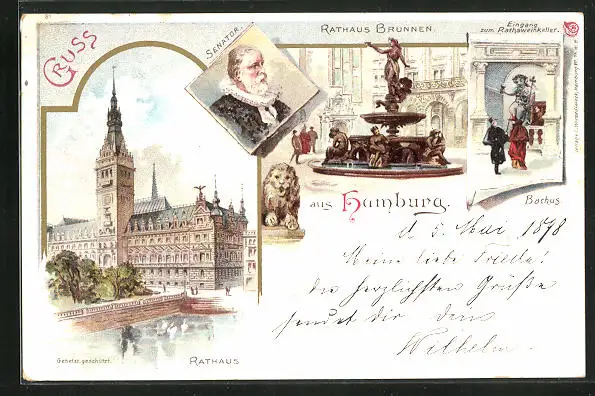 81
GRUSS
SENATOR.
RATHAUS BRUNNEN.
Eingang
zum Rathsweinkeller.
aus Hamburg.
Bachus
d 5. Mai 1898
Meine liebe Frieda!
die herzlichsten Grüße
sendet dir dein
Wilhelm
Gesetzl. geschützt.
RATHAUS